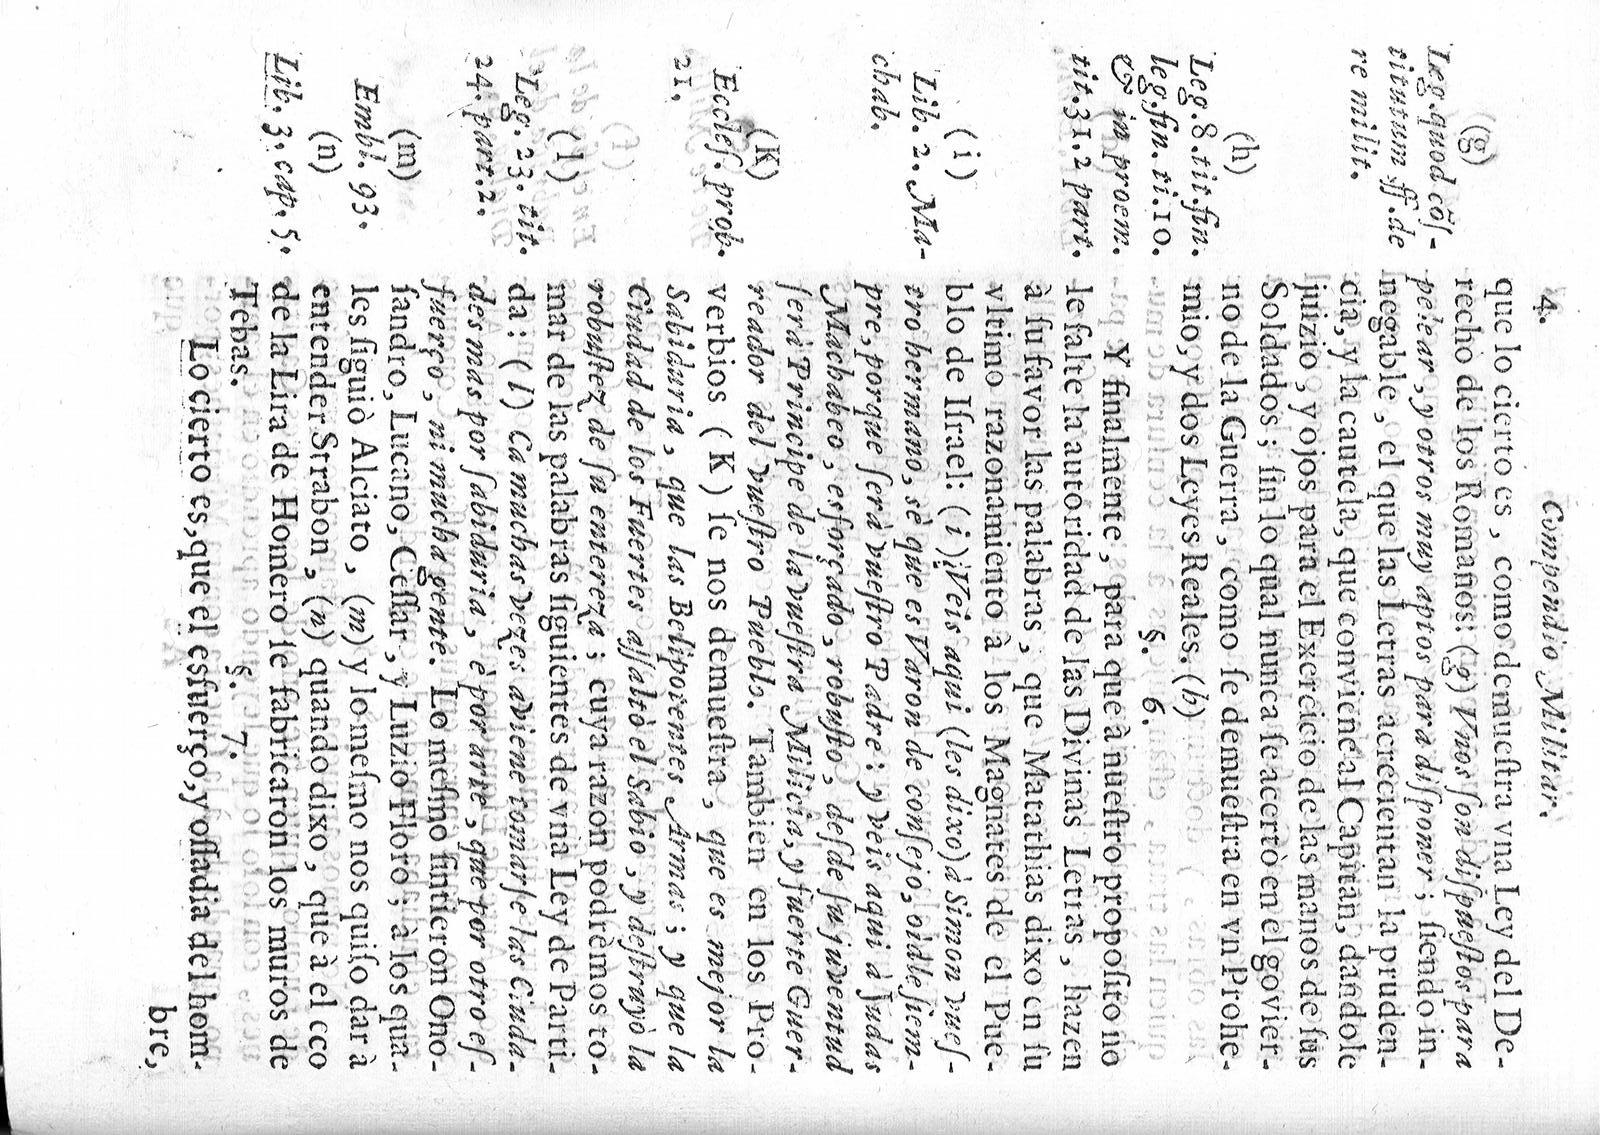 4. Compendio Militar.
que lo cierto es, como demueſtra vna Ley del De-
recho de los Romanos: (g) Vnos ſon diſpueſtos para
pelear, y otros muy aptos para diſponer; ſiendo in-
negable, el que las Letras acrecientan la pruden-
cia, y la cautela, que conviene al Capitan, dandole
juizio, y ojos para el Exercicio de las manos de ſus
Soldados; ſin lo qual nunca ſe acertò en el govier-
no de la Guerra, como ſe demueſtra en vn Prohe-
mio, y dos Leyes Reales. (h)
§. 6.
Y finalmente, para que à nueſtro propoſito no
le falte la autoridad de las Divinas Letras, hazen
à ſu favor las palabras, que Matathias dixo en ſu
vltimo razonamiento à los Magnates de el Pue-
blo de Iſrael: (i) Veis aqui (les dixo) à Simon vueſ-
tro hermano, sè que es Varon de conſejo, oidle ſiem-
pre, porque ſerà vueſtro Padre: y veis aqui à Judas
Machabeo, esforçado, robuſto, deſde ſu juventud
ſerà Principe de la vueſtra Milicia, y fuerte Guer-
reador del vueſtro Pueblo. Tambien en los Pro-
verbios (K) ſe nos demueſtra, que es mejor la
Sabiduria, que las Beliporentes Armas; y que la
Ciudad de los Fuertes aſſaltò el Sabio, y deſtruyò la
robuſtez de ſu entereza; cuya razon podrèmos to-
mar de las palabras ſiguientes de vna Ley de Parti-
da: (l) Ca muchas vezes aviene tomarſe las Ciuda-
des mas por ſabiduria, è por arte, que por otro eſ-
fuerço, ni mucha gente. Lo meſmo ſintieron Ono-
ſandro, Lucano, Ceſſar, y Luzio Floro; à los qua-
les ſiguiò Alciato, (m) y lo meſmo nos quiſo dar à
entender Strrabon, (n) quando dixo, que à el eco
de la Lira de Homero ſe fabricaron los muros de
Tebas.
§. 7.
Lo cierto es, que el esfuerço, y oſſadia del hom-
bre,
(g)
Leg. quod cõſ-
titutum ff. de
re milit.
(h)
Leg. 8. tit. fin.
leg. fin. ti. 10.
& in proem.
tit. 31. 2 part.
(i)
Lib. 2. Ma-
chab.
(K)
Ecclеſ. prob.
21.
(l)
Leg. 23. tit.
24. part. 2.
(m)
Embl. 93.
(n)
Lib. 3. cap. 5.